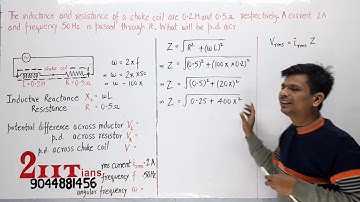 The inductance and resistance of a choke coil are 0.2H and 0.5Ω respectively. A current 2A
and frequency 50Hz is passed through it. What will be p.d. acr
choke coil
L=0.2H R=0.5Ω
ω = 2πf
⇒ ω = 2π×50
⇒ ω = 100π
Inductive Reactance X_L = ωL
Resistance R = 0.5Ω
potential difference across inductor V_L =
p.d. across resistor V_R =
p.d. across choke coil V =
rms current i_rms = 2A
frequency f = 50Hz
angular frequency ω =
2IITians
9044881456
Z = √R² + (ωL)²
⇒ Z = √(0.5)² + (100π×0.2)²
⇒ Z = √(0.5)² + (20π)²
⇒ Z = √0.25 + 400π²
V_rms = i_rms Z